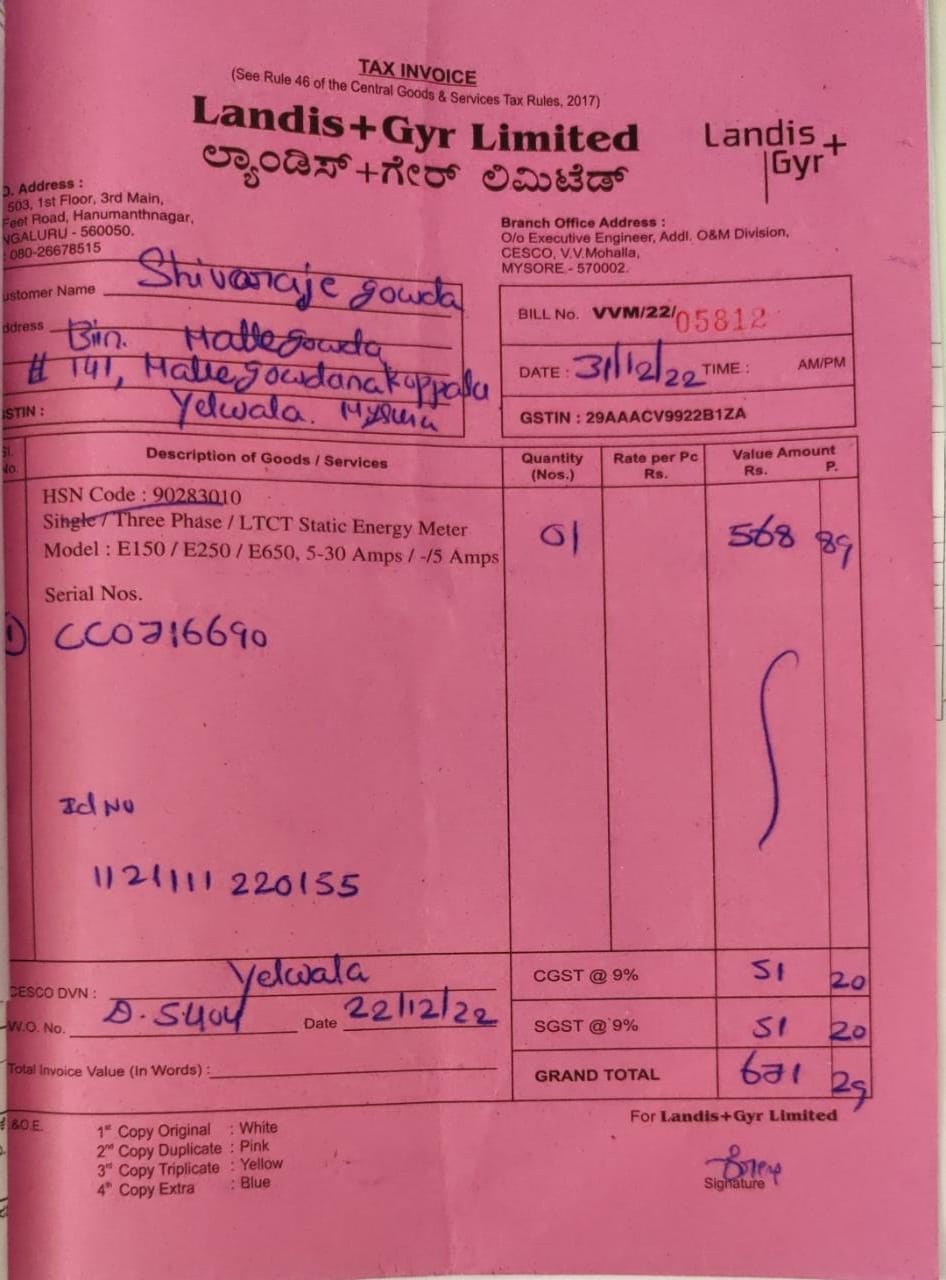 TAX INVOICE
(See Rule 46 of the Central Goods & Services Tax Rules, 2017)
Landis+Gyr Limited
ಲ್ಯಾಂಡಿಸ್+ಗೇರ್ ಲಿಮಿಟೆಡ್
Landis+
Gyr
O. Address :
503, 1st Floor, 3rd Main,
Feet Road, Hanumanthnagar,
NGALURU - 560050.
080-26678515
Branch Office Address :
O/o Executive Engineer, Addl. O&M Division,
CESCO, V.V.Mohalla,
MYSORE - 570002.
ustomer Name Shivaraje gowda
ddress Bin. Hallegowda
# 141, Hallegowdanakoppalu
STIN : Yelwala. Mysuru
BILL No. VVM/22/05812
DATE : 31/12/22 TIME : AM/PM
GSTIN : 29AAACV9922B1ZA
Sl. No. Description of Goods / Services Quantity (Nos.) Rate per Pc Rs. Value Amount Rs. P.
HSN Code : 90283010
Single / Three Phase / LTCT Static Energy Meter 01 568 89
Model : E150 / E250 / E650, 5-30 Amps / -/5 Amps
Serial Nos.
1) CC0716690
Id No
1121111 220155
CESCO DVN : Yelwala
W.O. No. D.5404 Date 22/12/22
Total Invoice Value (In Words) :
CGST @ 9% 51 20
SGST @ 9% 51 20
GRAND TOTAL 671 29
&O.E.
1st Copy Original : White
2nd Copy Duplicate : Pink
3rd Copy Triplicate : Yellow
4th Copy Extra : Blue
For Landis+Gyr Limited
Signature